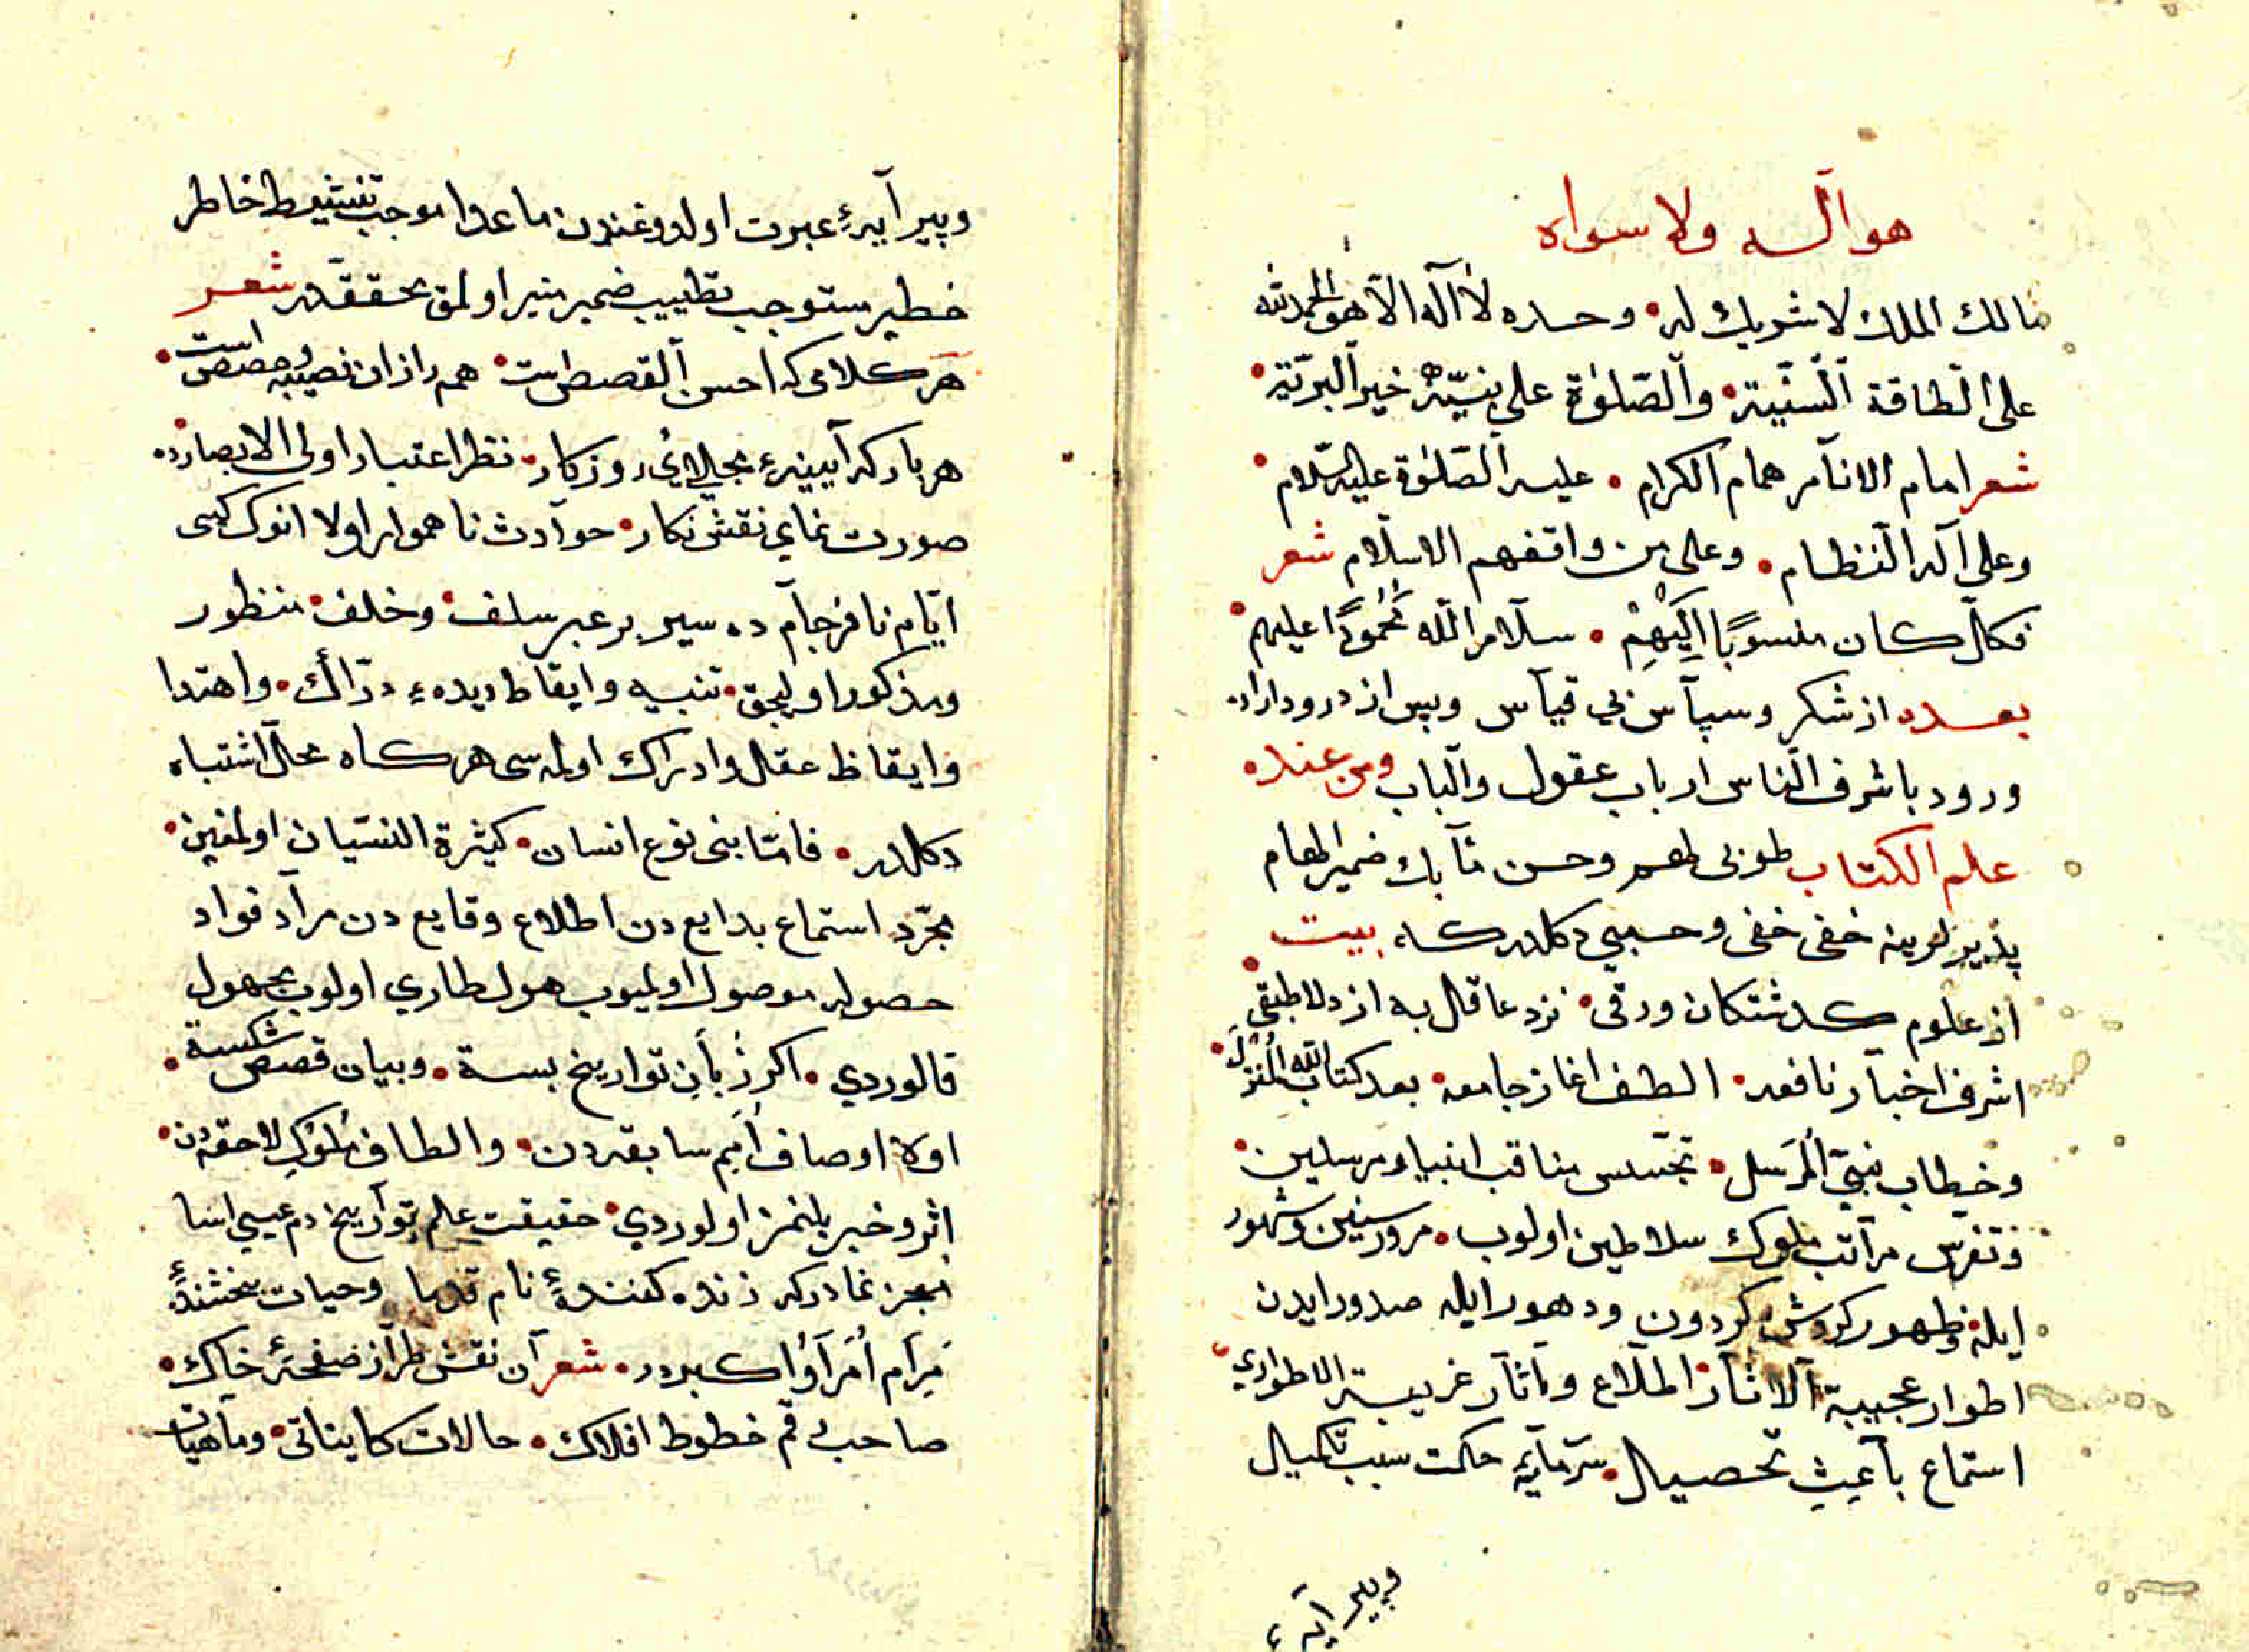 هو الله ولا سواه
مالك الملك لا شريك له • وحده لا اله الا هو الحمد لله
على الطاقة السنية • والصلوة على نبيه خير البرية •
شعر امام الانام همام الكرام • عليه الصلوة عليه السلام •
وعلى آله النظام • وعلى من واقفهم الاسلام شعر
فكل كان منسوبًا اِلَيْهِمْ • سلام الله محمودًا عليهم •
بعده از شكر وسپاس بي قياس وپس از درود اراد
ورود با شرف الناس ارباب عقول والباب ومن عنده •
علم الكتاب طوبى لهم وحسن مآبك ضمير الهام
پذيرلرينه خفى خفى وحسبي دكلدركه بيت •
از علوم كذشتكان ورقى • نزد عاقل به از دلا طبقى
اشرف اخبار نافعه • الطف اغاز جامعه • بعد كتاب الله المُنْزَل •
وخطاب نبيّ المُرسَل • تجسس مناقب انبيا ومرسلين •
وتفرس مراتب ملوك سلاطين اولوب • مرور سنين وشهور
ايله وظهور كروش كردون ودهور ايله صدور ايدن
اطوار عجيبة الاثار اطلاع ومآثار غريبة الاطواري •
استماع باعِثِ تحصيل • سرمايهٔ حكمت سبب تكميل
وپيرايهٔ
وپيرآيهٔ عبرت اولدوغندن ما عدا موجب تنشيط خاطر
خطير مستوجب تطييب ضمير منير اولمق محققدر شعر
هر كلامى كه احسن القصص است • همه را از ان نصيبه وحصص است •
هر بار كه آيينهٔ مجالاىء روزكار • نظر اعتبار اولى الابصارده •
صورت نماي نقش نكار • حوادث ناهموار اولا انوك كبى
ايّام نافرجام ده سير بر عبر سلف • وخلف • منظور
ومذكور اوليجق • تنبيه وايقاظ ديدهء درّاك • واهتدا
وايقاظ عقل وادراك اولمه سى هركاه محل اشتباه
دكلدر • فامّا بنى نوع انسان • كثيرة النسيان اولمغين •
مجرّد استماع بدايع دن اطلاع وقايع دن مراد فواد
حصوله موصول اولميوب هول طاري اولوب مجهول
قالوردي • اكر زُبانِ تواريخ بسته • وبيان قصص شكسته •
اولا اوصاف اُمَم سابقه دن • والطاف مُلوكِ لاحقه دن •
اثر وخبر بلنمز اولوردي • حقيقت علم تواريخ دم عيسى اسا
معجز نمادركه زنده كنندهٔ نام قدما وحيات بخشندهٔ
مَرام اُمَراوُاك بردر • شعر آن نقش طراز صفحهٔ خاك •
صاحب رقم خطوط افلاك • حالات كايناتى • وماهيات